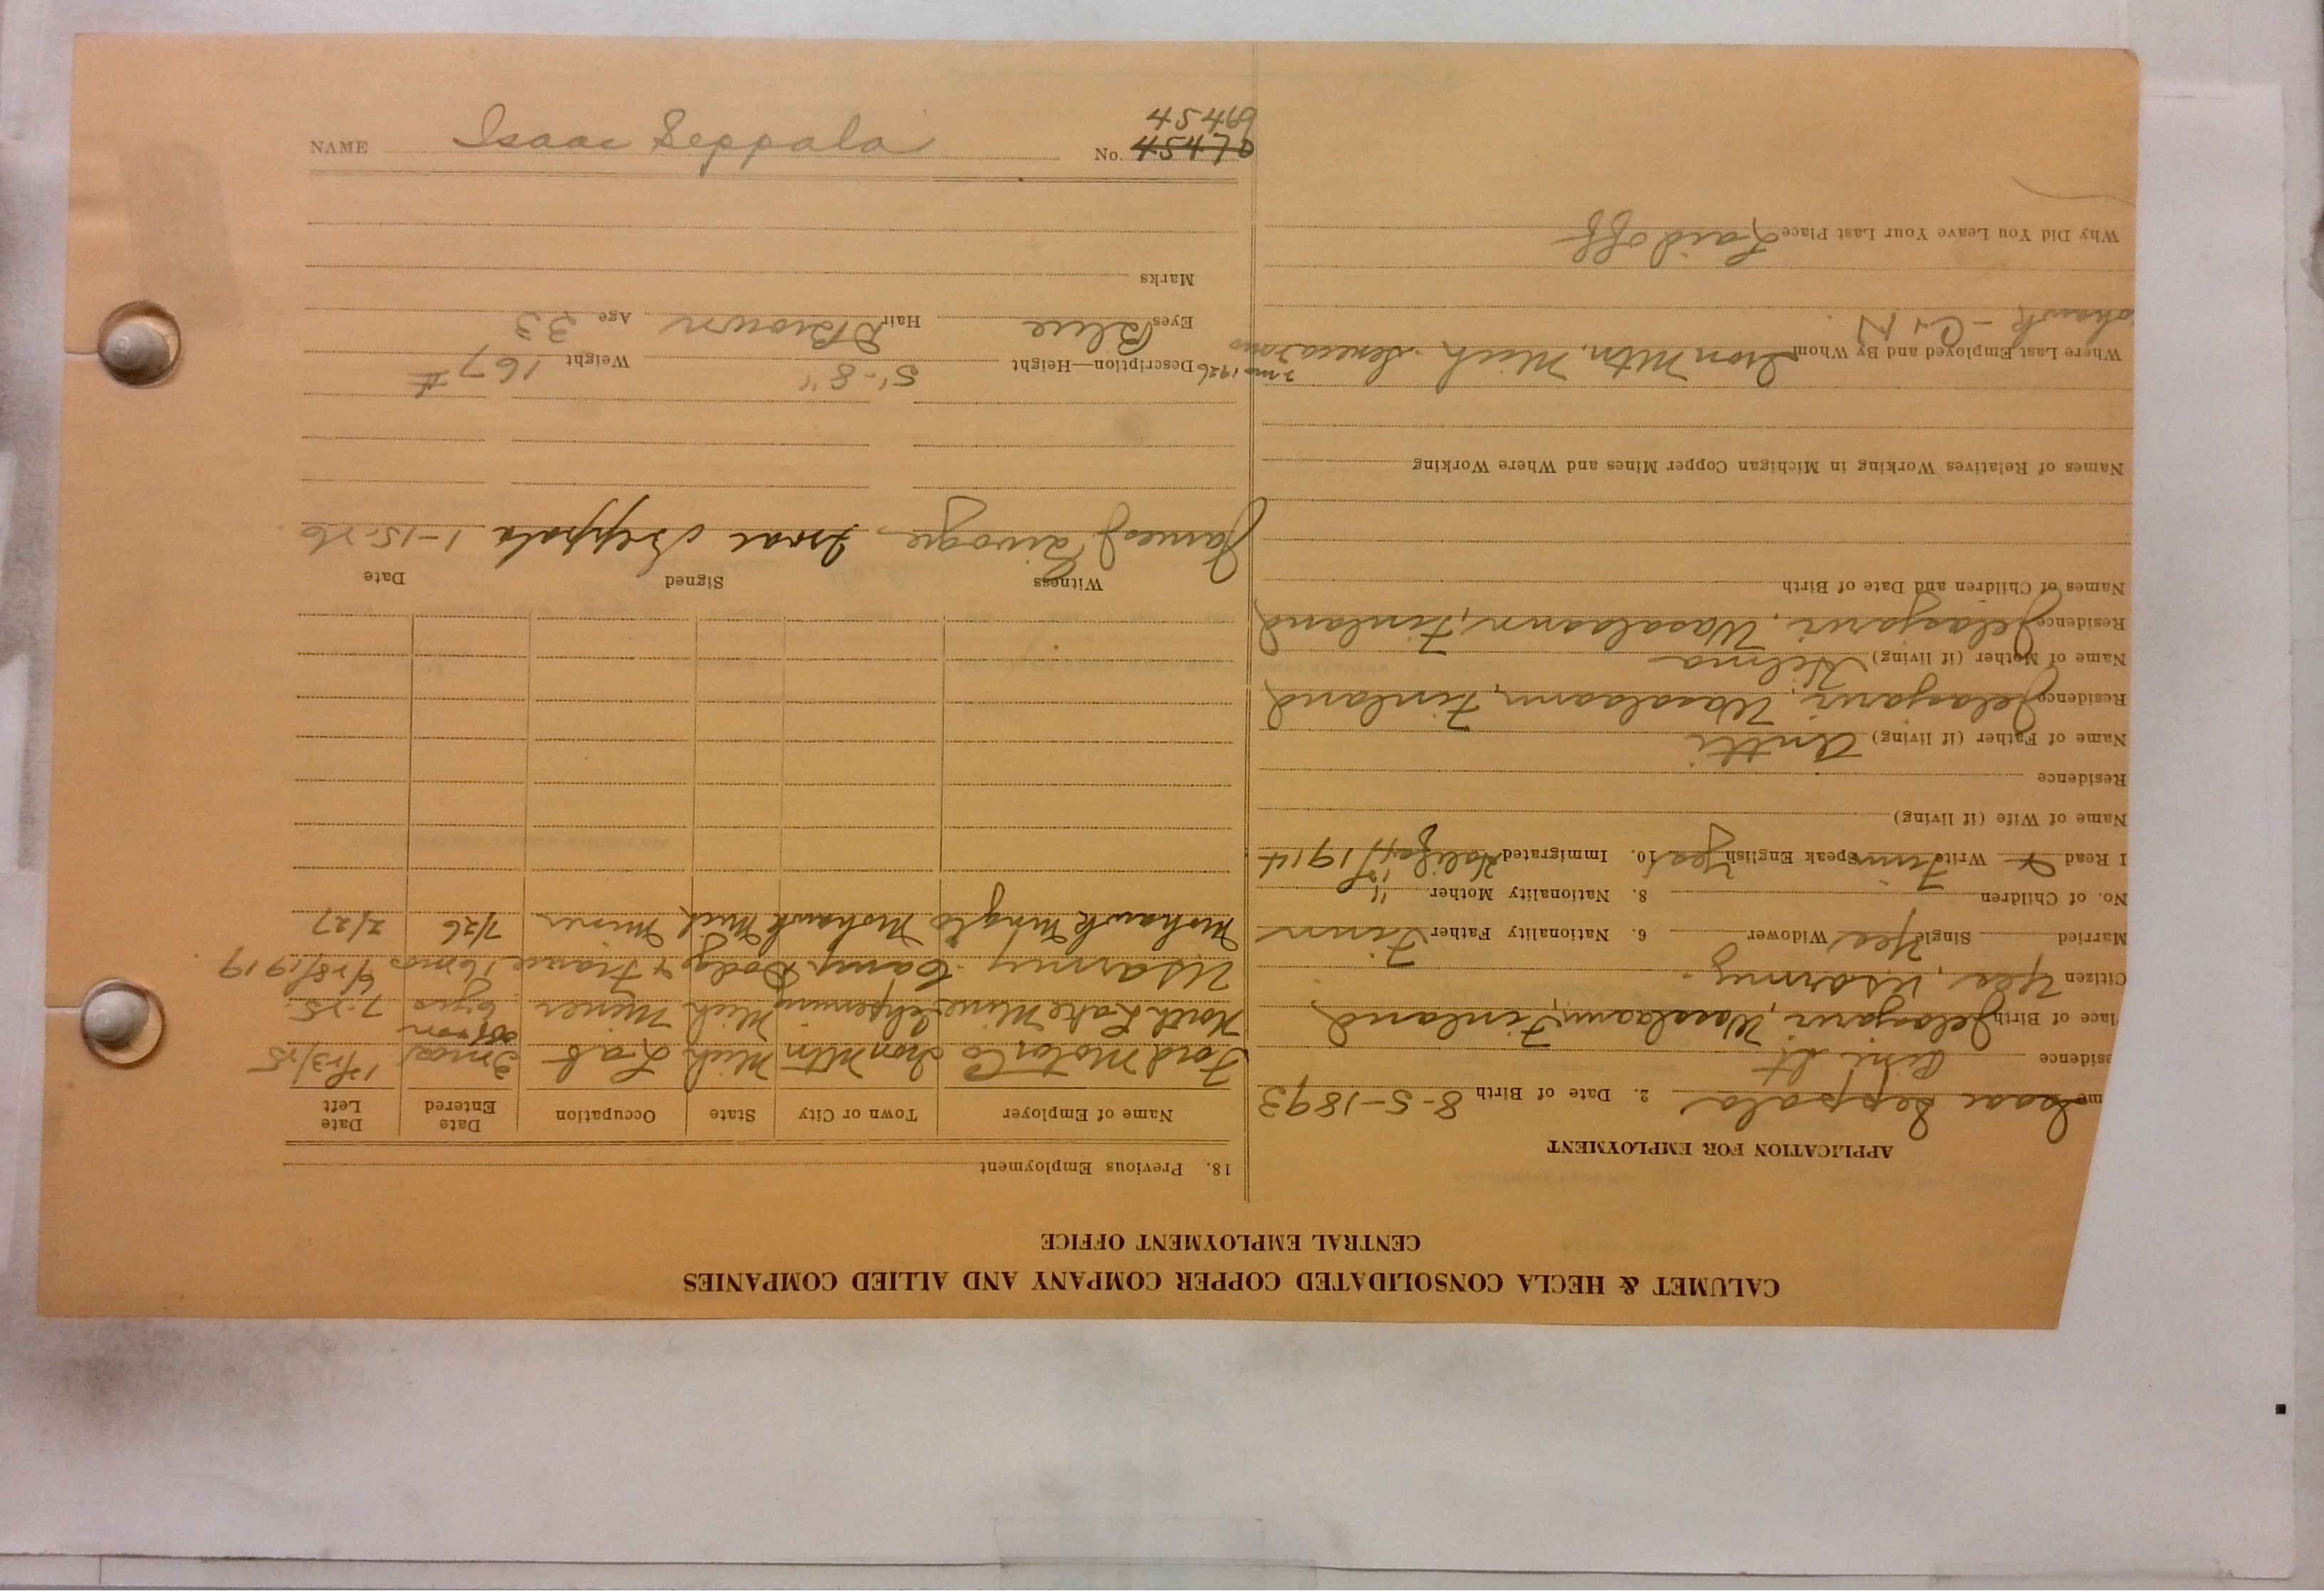 CALUMET & HECLA CONSOLIDATED COPPER COMPANY AND ALLIED COMPANIES
CENTRAL EMPLOYMENT OFFICE
APPLICATION FOR EMPLOYMENT
me Isaac Seppala 2. Date of Birth 8-5-1893
esidence
lace of Birth Jelasjarvi, Wasalaann, Finland
Citizen Yes, US army.
Married Single Yes Widower 6. Nationality Father Finn
No. of Children 8. Nationality Mother "
I Read & Write Finn Speak English Yes 10. Immigrated Halifax 1914
Name of Wife (if living)
Residence
Name of Father (if living) Antti
Residence Jelasjarvi, Wasalaann, Finland
Name of Mother (if living) Hilma
Residence Jelasjarvi, Wasalaann, Finland
Names of Children and Date of Birth
Names of Relatives Working in Michigan Copper Mines and Where Working
Where Last Employed and By Whom Iron Mtn. Mich. Seneca 2 mo 1926
ohawk - C & H
Why Did You Leave Your Last Place Laid off
18. Previous Employment
Name of Employer Town or City State Occupation Date Entered Date Left
Ford Motor Co Iron Mtn Mich Lab 3 mos 12/13/25
North Lake Mine Ishpeming Mich Miner 6 yrs off & on 7-25
US army Camp Dodge & France 16 mos 6/18/1919
Mohawk Mng Co Mohawk Mich Miner 7/26 2/27
Witness Signed Date
James Isaac Seppala 1-15-26
Description—Height 5'-8" Weight 167 #
Eyes Blue Hair D Brown Age 33
Marks
45469
NAME Isaac Seppala No. 45470